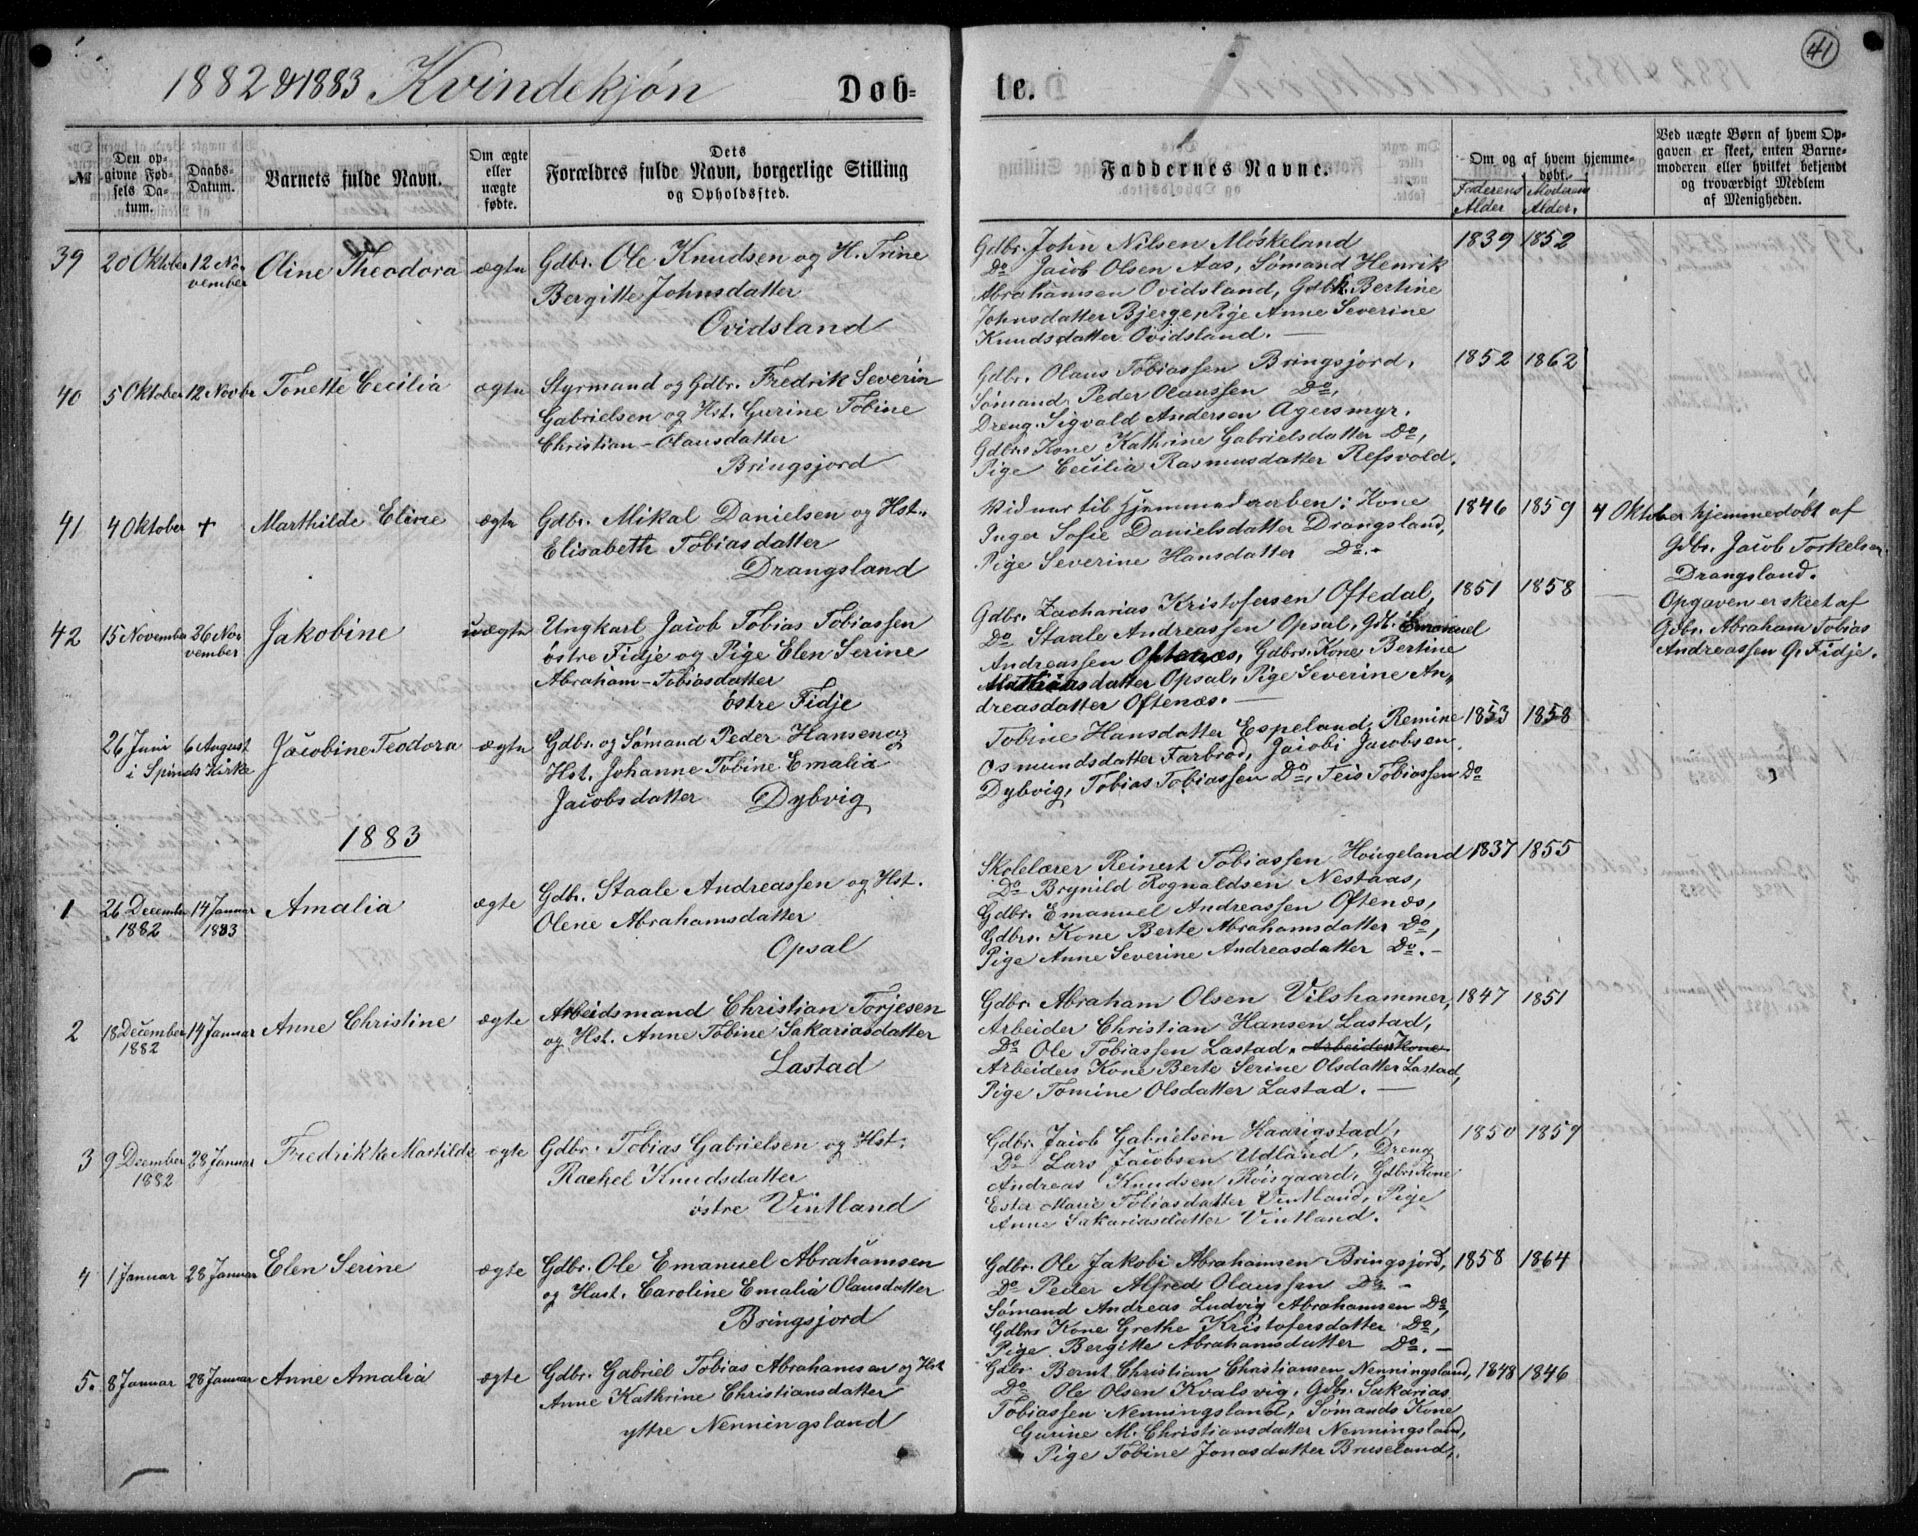 1882 & 1883 Kvindekjön Döb= te. 41
№ Den opgivne Fødsels Datum. Daabs-Datum. Barnets fulde Navn. Om ægte eller uægte fødte. Dets Forældres fulde Navn, borgerlige Stilling og Opholdssted.
Faddernes Navne. Om og af hvem hjemmedøbt. Faderens Alder Moderens Alder. Ved uægte Børn af hvem Opgaven er skeet, enten Barnemoderen eller hvilket bekjendt og troværdigt Medlem af Menigheden.
39 20 Oktober 12 November Oline Theodora ægte
Gdbr. Ole Knudsen og H. Trine
Bergitte Johnsdatter
Ovidsland
Gdbr. John Nilsen Möskeland 1839 1852
Do Jacob Olsen Aas, Sömand Henrik
Abrahamsen Ovidsland, Gdbk. Bertine
Johnsdatter Bjerge, Pige Anne Severine
Knudsdatter Ovidsland. —
40 5 Oktober 12 Novbr Tonette Cecilia ægte
Styrmand og Gdbr. Fredrik Severin
Gabrielsen og Hst. Gurine Tobine
Christian-Olausdatter
Bringsjord
Gdbr. Olaus Tobiassen Bringsjord, 1852 1862
Sömand Peder Olaussen Do,
Dreng Sigvald Andersen Agersmyr.
Gdbrs Kone Kathrine Gabrielsdatter Do,
Pige Cecilia Rasmusdatter Refsvold.
41 4 Oktober + Marthilde Elivie ægte
Gdbr. Mikal Danielsen og Hst.
Elisabeth Tobiasdatter
Drangsland
Vidner til hjemmedaaben: Kone 1846 1859
Inger Sofie Danielsdatter Drangsland,
Pige Severine Hansdatter Do.
4 Oktober hjemmedöbt af
Gdbr. Jacob Torkelsen
Drangsland.
42 15 November 26 November Jakobine uægte
Ungkarl Jacob Tobias Tobiassen
östre Fidje og Pige Elen Serine
Abraham-Tobiasdatter
östre Fidje
Gdbr. Zacharias Kristofersen Oftedal, 1851 1858
Do Staale Andreassen Opsal, Gdb. Emanuel
Andreassen Oftenæs, Gdbrs. Kone Bertine
Mathiasdatter Opsal, Pige Severine An-
dreasdatter Oftenæs. —
Opgaven er skeet af
Gdbr. Abraham Tobias
Andreassen Ö. Fidje.
26 Juni 6 August i Spinds Kirke Jacobine Teodora ægte
Gdbr. og Sömand Peder Hansen og
Hst. Johanne Tobine Emalia
Jacobsdatter Dybvig
Tobine Hansdatter Espeland, Remine 1853 1858
Osmundsdatter Farbrod, Jacobi Jacobsen
Dybvig, Tobias Tobiassen Do, Teis Tobiassen Do
1883
1 26 December 1882 14 Januar 1883 Amalia ægte
Gdbr. Staale Andreassen og Hst.
Olene Abrahamsdatter
Opsal
Skolelærer Reinert Tobiassen Hougeland 1837 1855
Do Brynild Rognaldsen Nestaas,
Gdbr. Emanuel Andreassen Oftenæs,
Gdbrs. Kone Berte Abrahamsdatter Do,
Pige Anne Severine Andreasdatter Do. —
2 18 December 1882 14 Januar Anne Christine ægte
Arbeidsmand Christian Torjesen
og Hst. Anne Tobine Sakariasdatter
Lastad
Gdbr. Abraham Olsen Vilshammer, 1847 1851
Arbeider Christian Hansen Lastad,
Do Ole Tobiassen Lastad. Arbeider Kone
Arbeiders Kone Berte Serine Olsdatter Lastad,
Pige Tomine Olsdatter Lastad. —
3 9 December 1882 28 Januar Fredrikke Martilde ægte
Gdbr. Tobias Gabrielsen og Hst.
Rachel Knudsdatter
östre Vintland
Gdbr. Jacob Gabrielsen Haarigstad, 1850 1857
Do Lars Jacobsen Udland, Dreng
Andreas Knudsen Röisgaard, Gdbrs Kone
Ester Marie Tobiasdatter Vintland, Pige
Anne Sakariasdatter Vintland.
4 1 Januar 28 Januar Elen Serine ægte
Gdbr. Ole Emanuel Abrahamsen
og Hust. Caroline Emalia Olausdatter
Bringsjord
Gdbr. Ole Jakobi Abrahamsen Bringsjord, 1858 1864
Do Peder Alfred Olaussen Do —
Sömand Andreas Ludvig Abrahamsen Do,
Gdbrs Kone Grethe Kristofersdatter Do,
Pige Bergitte Abrahamsdatter Do. —
5. 8 Januar 28 Januar Anne Amalia ægte
Gdbr. Gabriel Tobias Abrahamsen og Hst
Anne Kathrine Christiansdatter
yttre Nenningsland
Gdbr. Bernt Christian Christiansen Nenningsland, 1848 1846
Do Ole Olsen Kvalsvig, Gdbr. Sakarias
Tobiassen Nenningsland, Sömands Kone
Gurine M. Christiansdatter Nenningsland,
Pige Tobine Jonasdatter Bruseland.